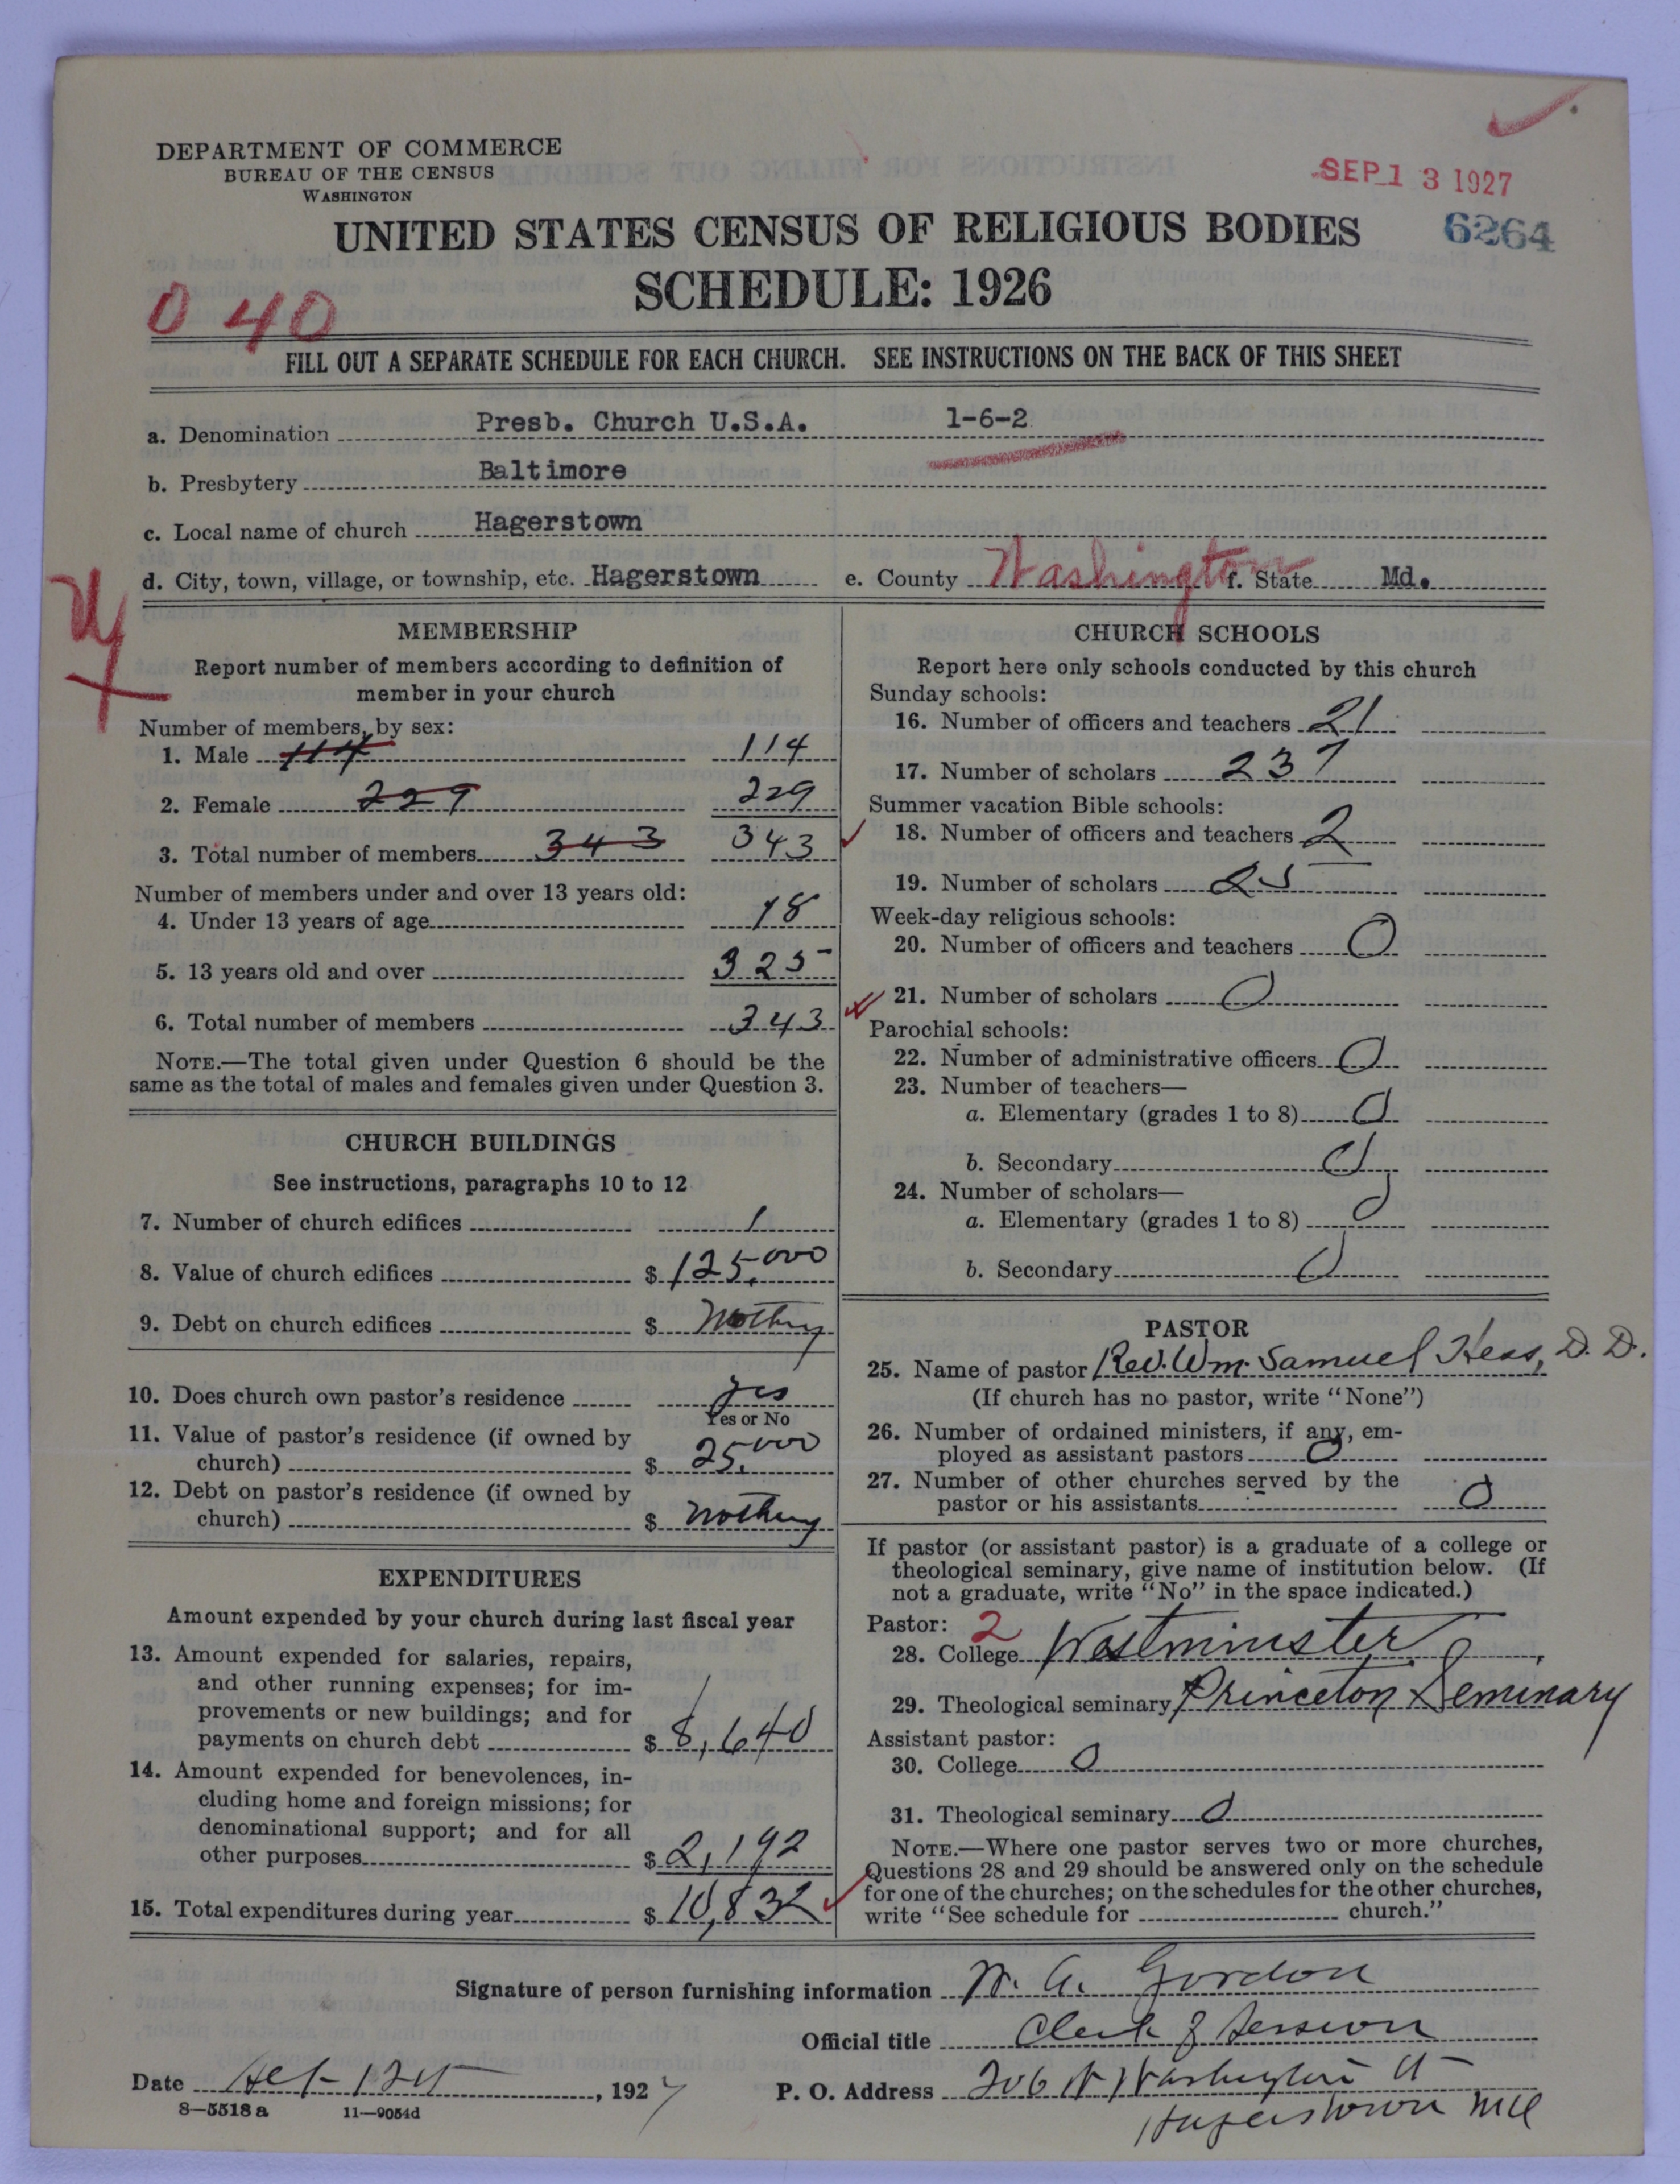 DEPARTMENT OF COMMERCE
BUREAU OF THE CENSUS
WASHINGTON
SEP 13 1927
UNITED STATES CENSUS OF RELIGIOUS BODIES
6264
SCHEDULE: 1926
0 40
FILL OUT A SEPARATE SCHEDULE FOR EACH CHURCH. SEE INSTRUCTIONS ON THE BACK OF THIS SHEET
a. Denomination Presb. Church U.S.A. 1-6-2
b. Presbytery Baltimore
c. Local name of church Hagerstown
d. City, town, village, or township, etc. Hagerstown e. County Washington f. State Md.
MEMBERSHIP
Report number of members according to definition of
member in your church
Number of members, by sex:
1. Male 114 114
2. Female 229 229
3. Total number of members 343 343
Number of members under and over 13 years old:
4. Under 13 years of age 18
5. 13 years old and over 325
6. Total number of members 343
NOTE.—The total given under Question 6 should be the
same as the total of males and females given under Question 3.
CHURCH BUILDINGS
See instructions, paragraphs 10 to 12
7. Number of church edifices 1
8. Value of church edifices $ 125,000
9. Debt on church edifices $ Nothing
10. Does church own pastor's residence yes
Yes or No
11. Value of pastor's residence (if owned by
church) $ 25,000
12. Debt on pastor's residence (if owned by
church) $ nothing
EXPENDITURES
Amount expended by your church during last fiscal year
13. Amount expended for salaries, repairs,
and other running expenses; for im-
provements or new buildings; and for
payments on church debt $ 8,640
14. Amount expended for benevolences, in-
cluding home and foreign missions; for
denominational support; and for all
other purposes $ 2,192
15. Total expenditures during year $ 10,832
CHURCH SCHOOLS
Report here only schools conducted by this church
Sunday schools:
16. Number of officers and teachers 21
17. Number of scholars 237
Summer vacation Bible schools:
18. Number of officers and teachers 2
19. Number of scholars 25
Week-day religious schools:
20. Number of officers and teachers 0
21. Number of scholars 0
Parochial schools:
22. Number of administrative officers 0
23. Number of teachers—
a. Elementary (grades 1 to 8) 0
b. Secondary 0
24. Number of scholars—
a. Elementary (grades 1 to 8) 0
b. Secondary 0
PASTOR
25. Name of pastor Rev. Wm. Samuel Hess, D. D.
(If church has no pastor, write "None")
26. Number of ordained ministers, if any, em-
ployed as assistant pastors 0
27. Number of other churches served by the
pastor or his assistants 0
If pastor (or assistant pastor) is a graduate of a college or
theological seminary, give name of institution below. (If
not a graduate, write "No" in the space indicated.)
Pastor: 2
28. College Westminster,
29. Theological seminary Princeton Seminary
Assistant pastor:
30. College 0
31. Theological seminary 0
NOTE.—Where one pastor serves two or more churches,
Questions 28 and 29 should be answered only on the schedule
for one of the churches; on the schedules for the other churches,
write "See schedule for church."
Signature of person furnishing information W. A. Gordon
Official title Clerk of Session
Date , 1927 P. O. Address 206 W Washington St
8-5518a 11-9054d Hagerstown Md